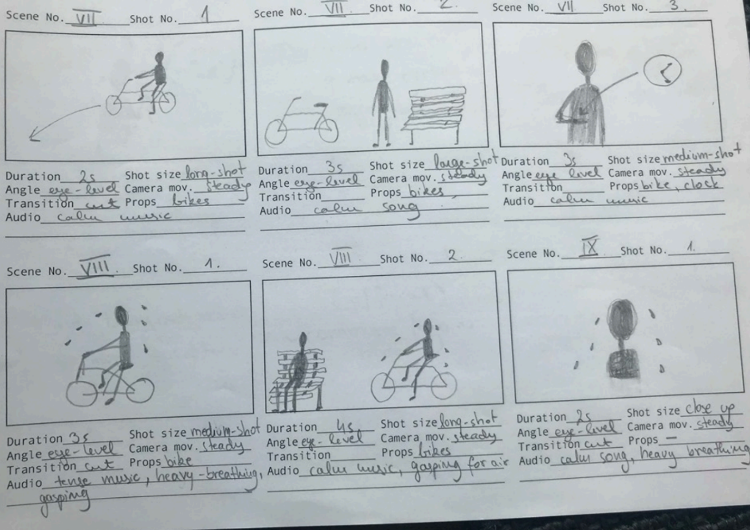 Scene No. VII Shot No. 1
Duration 2s Shot size long-shot
Angle eye-level Camera mov. steady
Transition cut Props bikes
Audio calm music
Scene No. VII Shot No. 2.
Duration 3s Shot size large-shot
Angle eye-level Camera mov. steady
Transition Props bikes
Audio calm song
Scene No. VII Shot No. 3.
Duration 3s Shot size medium-shot
Angle eye level Camera mov. steady
Transition Props bike, clock
Audio calm music
Scene No. VIII Shot No. 1.
Duration 3s Shot size medium-shot
Angle eye-level Camera mov. steady
Transition cut Props bike
Audio tense music, heavy-breathing,
gasping
Scene No. VIII Shot No. 2
Duration 4s Shot size long-shot
Angle eye-level Camera mov. steady
Transition Props bikes
Audio calm music, gasping for air
Scene No. IX Shot No. 1.
Duration 2s Shot size close up
Angle eye-level Camera mov. steady
Transition cut Props —
Audio calm song, heavy breathing